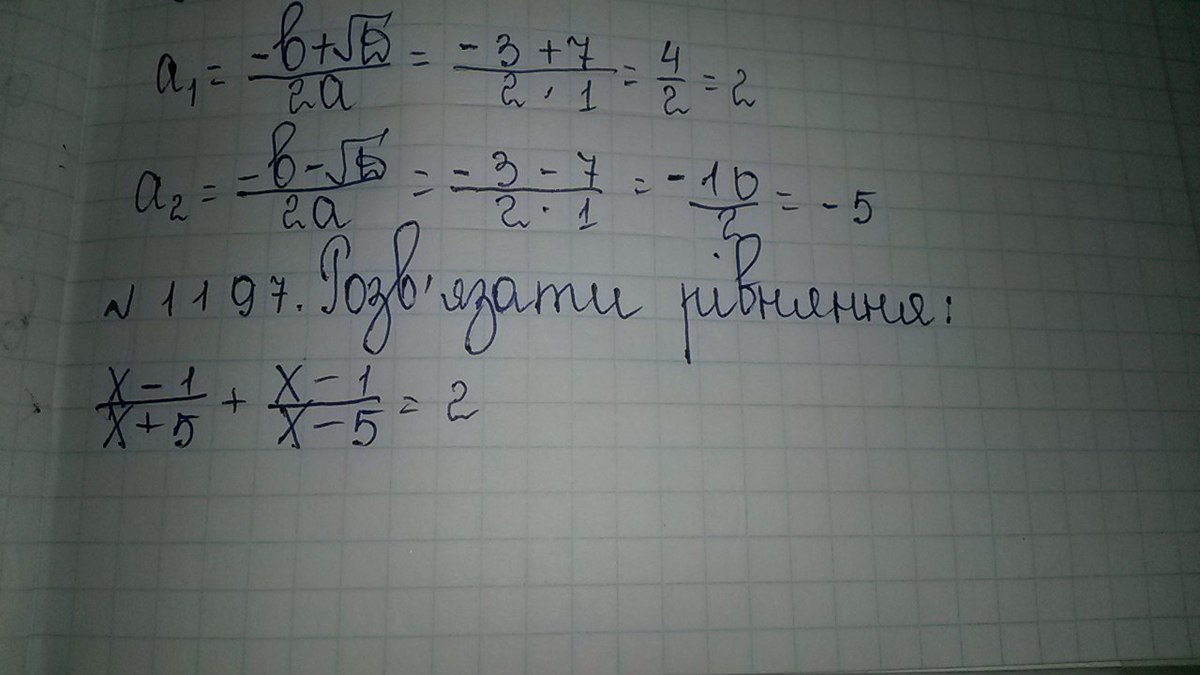 a₁ = (-b+√D)/(2a) = (-3+7)/(2·1) = 4/2 = 2
a₂ = (-b-√D)/(2a) = (-3-7)/(2·1) = -10/2 = -5
№1197. Розв'язати рівняння:
(x-1)/(x+5) + (x-1)/(x-5) = 2